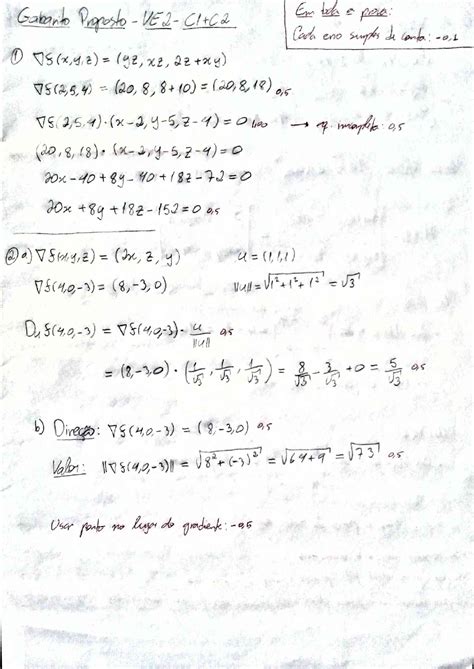 Gabarito Proposto - VE2 - C1+C2
Em toda a prova:
Cada erro simples de conta: -0,1
① ∇f(x,y,z) = (yz, xz, 2z+xy)
∇f(2,5,4) = (20, 8, 8+10) = (20,8,18) 0,5
∇f(2,5,4)·(x-2, y-5, z-4) = 0 1,00 → eq. incompleta: 0,5
(20,8,18)·(x-2, y-5, z-4) = 0
20x-40+8y-40+18z-72=0
20x+8y+18z-152=0 0,5
② a) ∇f(x,y,z) = (2x, z, y) u = (1,1,1)
∇f(4,0,-3) = (8,-3,0) ||u|| = √1²+1²+1² = √3
Duf(4,0,-3) = ∇f(4,0,-3)· u/||u|| 0,5
= (8,-3,0)·(1/√3, 1/√3, 1/√3) = 8/√3 - 3/√3 + 0 = 5/√3 0,5
b) Direção: ∇f(4,0,-3) = (8,-3,0) 0,5
Valor: ||∇f(4,0,-3)|| = √8²+(-3)² = √64+9 = √73 0,5
Usar ponto no lugar do gradiente: -0,5